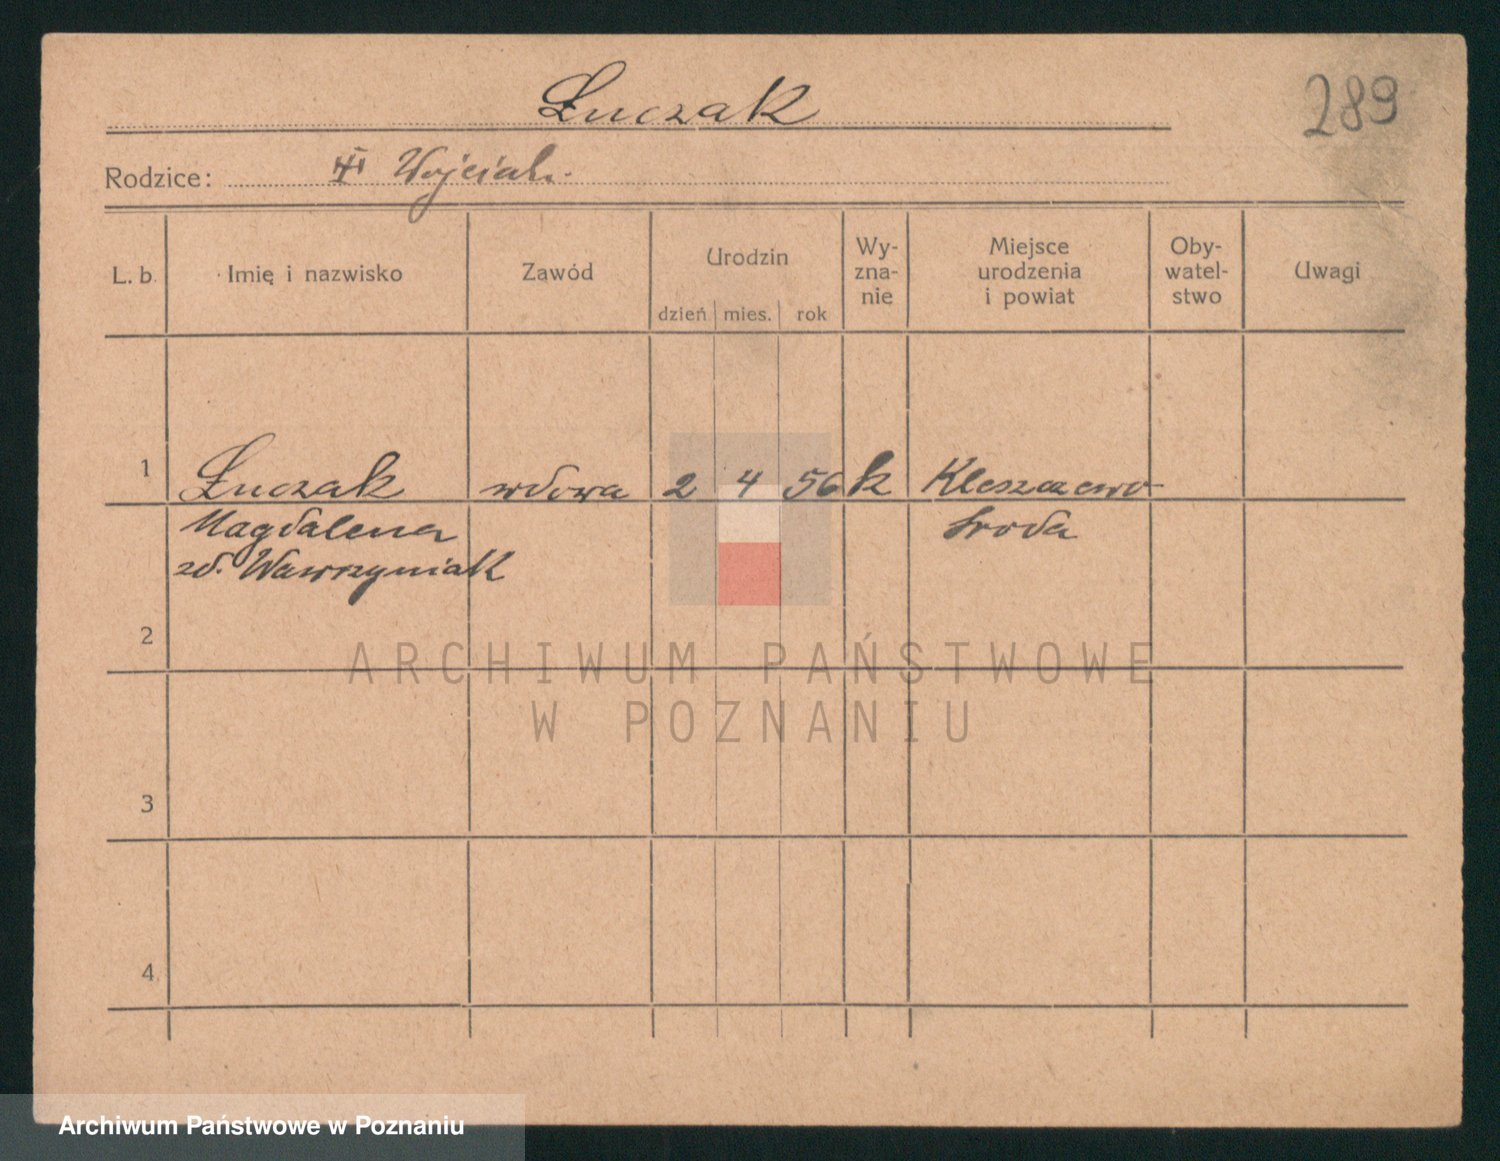 Łuczak
289
Rodzice: Wojciech.
L. b. Imię i nazwisko Zawód Urodzin dzień mies. rok Wy-zna-nie Miejsce urodzenia i powiat Oby-watel-stwo Uwagi
1 Łuczak wdowa 2 4 56 k Kleszczewo
Magdalena Środa
zd. Wawrzyniak
2
ARCHIWUM PAŃSTWOWE
W POZNANIU
3
4
Archiwum Państwowe w Poznaniu